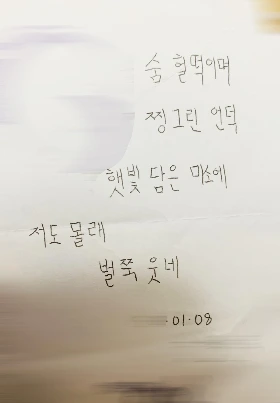 숨 헐떡이며
찡그린 언덕
햇빛 담은 미소에
저도 몰래
벌쭉 웃네
·01·08